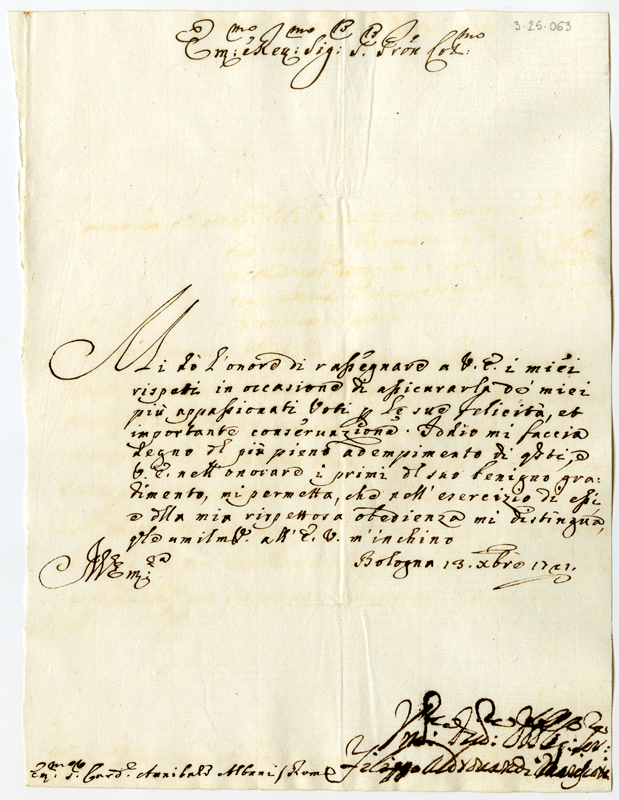 3-25-063
Em:mo e Rev:mo Sig: P. Prōn Col:mo
Mi dò l'onore di rassegnare a V. E. i miei
rispeti in occasione di assicurarla de' miei
più appassionati Voti p le sue felicità, et
importante conservazione. Iddio mi faccia
degno del più pieno adempimento di qsti, e
V. E. nell'onorare i primi del suo benigno gra:
dimento, mi permetta, che nell'esercizio di essi
e della mia rispettosa obedienza mi distingua,
umilm. all'E. V. m'inchino
Bologna 13. Xbre
Em:
Filippo Aldrovandi Marescotti
Em:mo S. Card. Annibale Albani / Rome